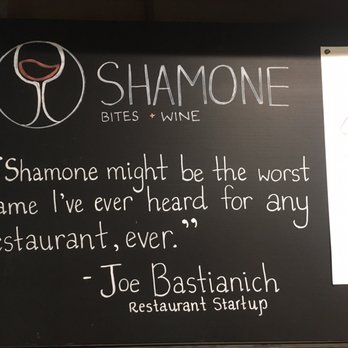 SHAMONE
BITES + WINE
"Shamone might be the worst
ame I've ever heard for any
estaurant, ever."
- Joe Bastianich
Restaurant Startup